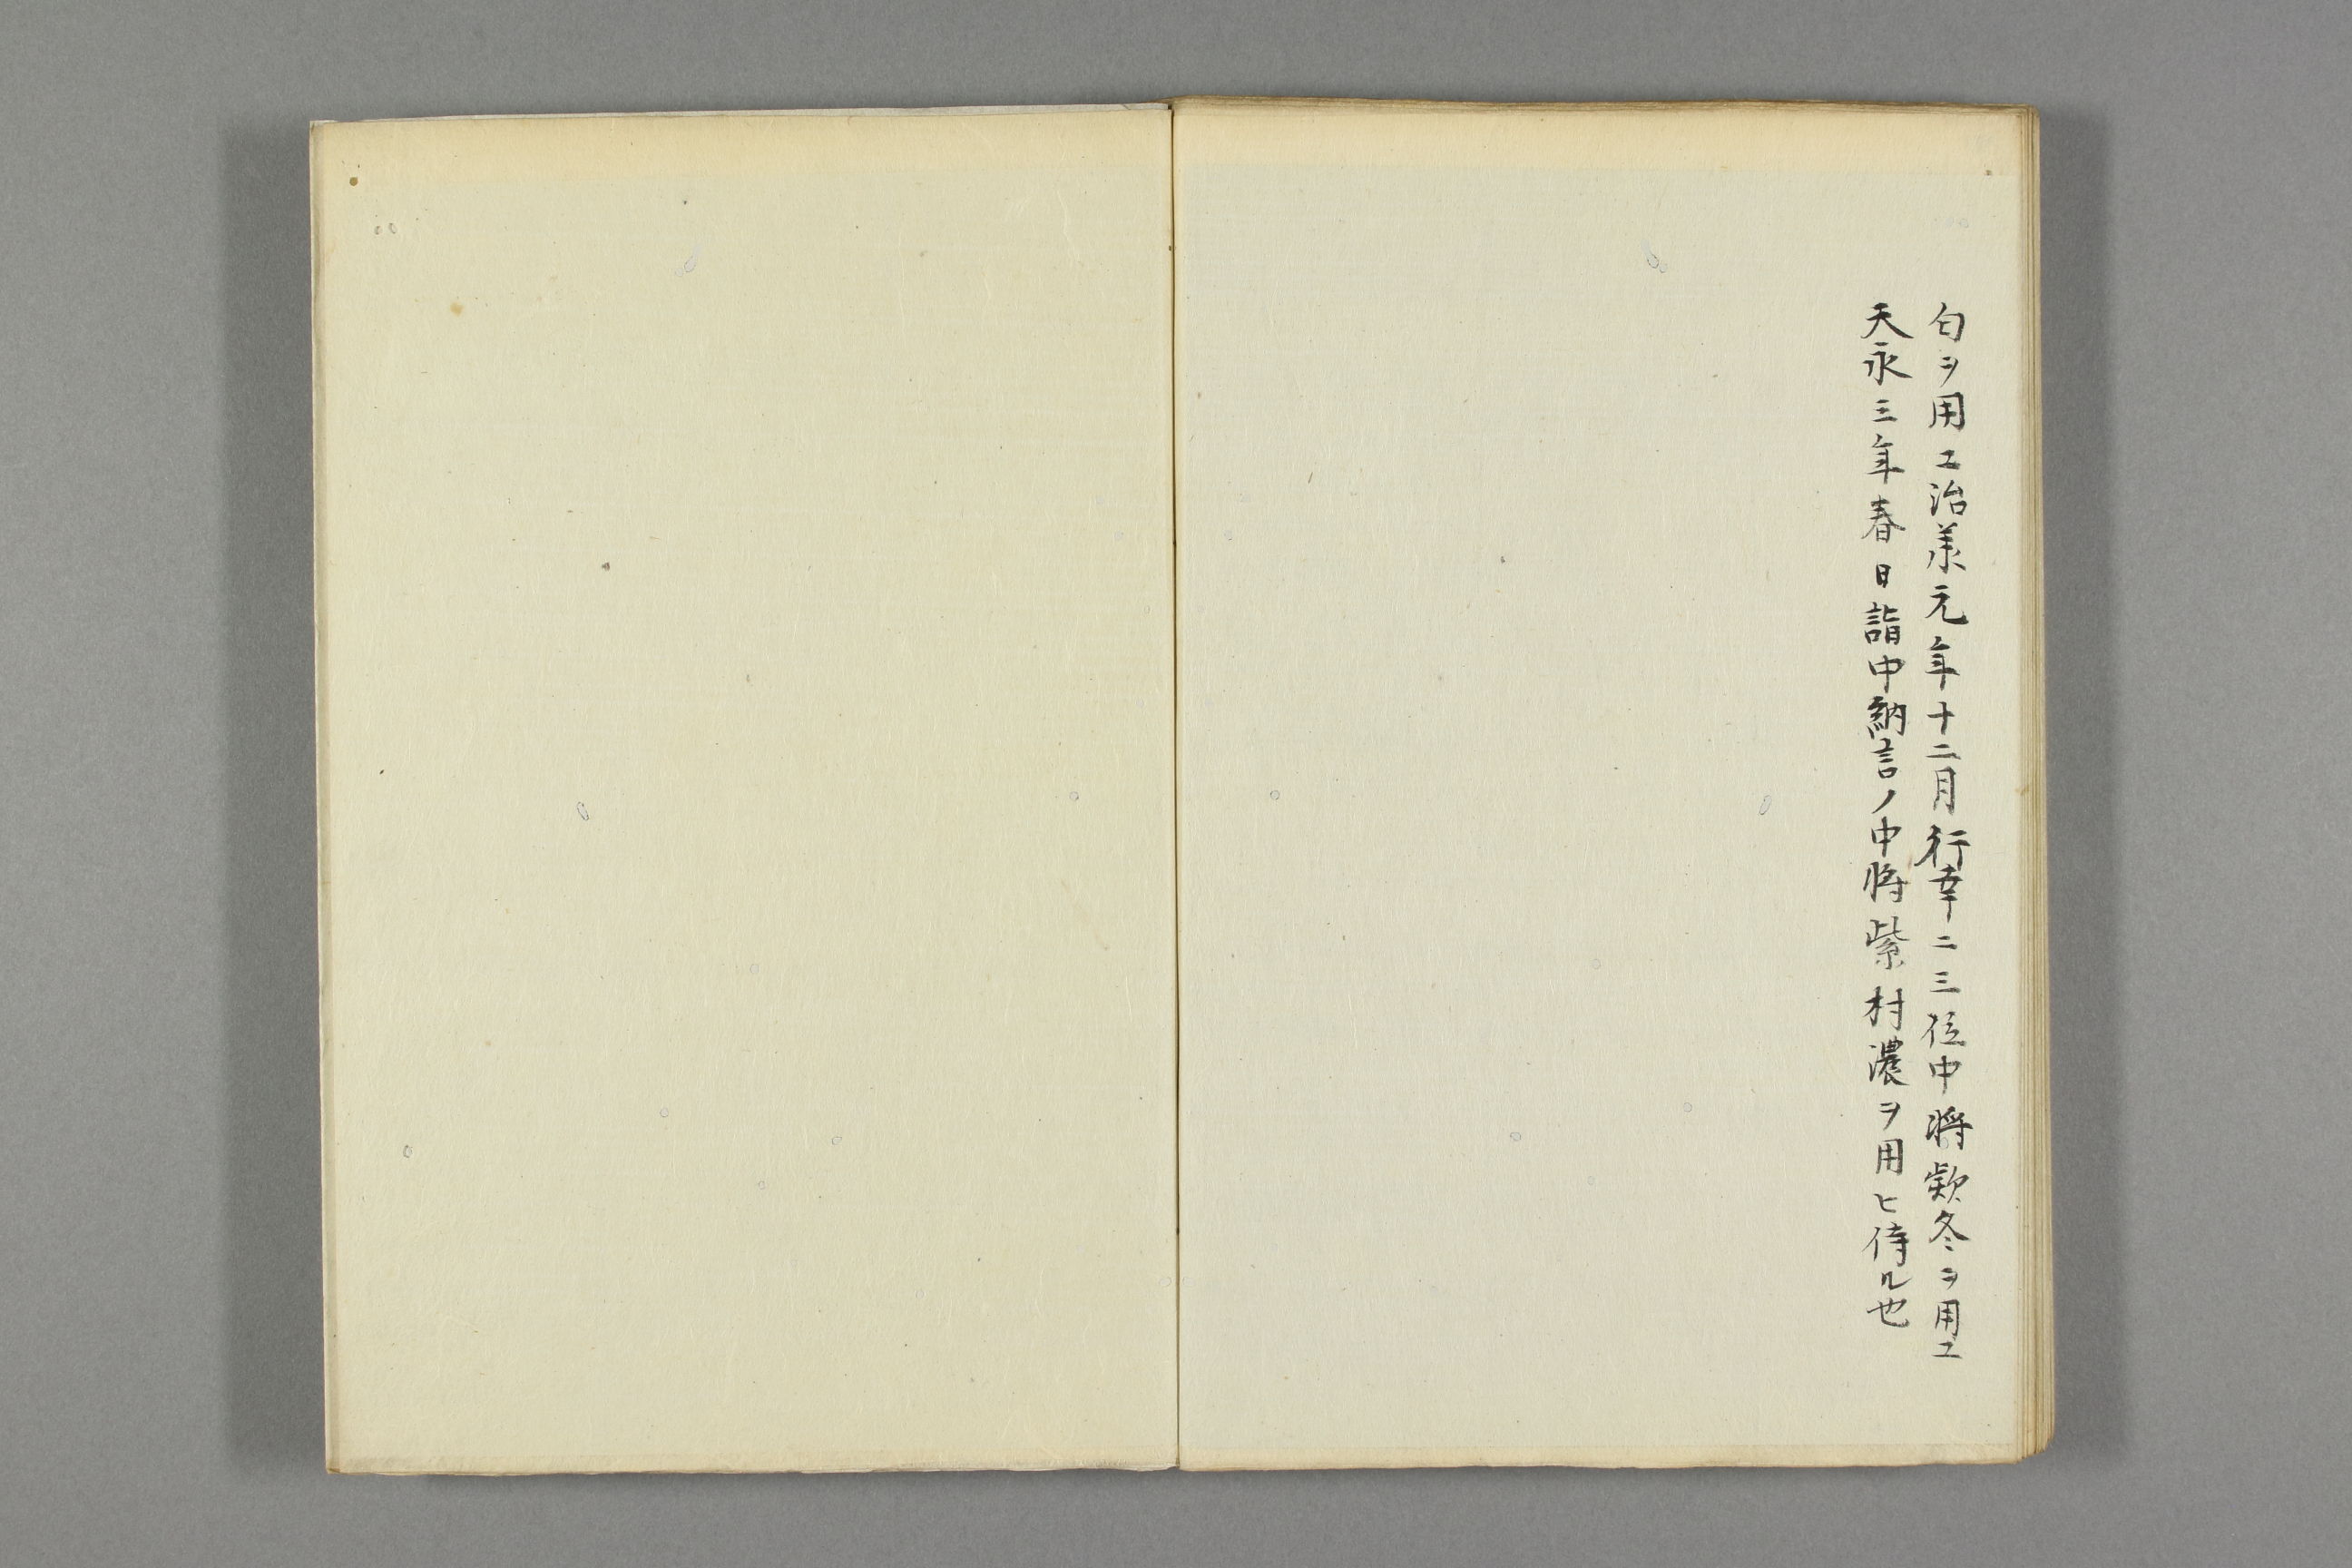 匂ヲ用ユ治承元年十二月行幸ニ三位中将欵冬ヲ用ユ
天永三年春日詣中納言ノ中将紫村濃ヲ用ヒ侍ル也